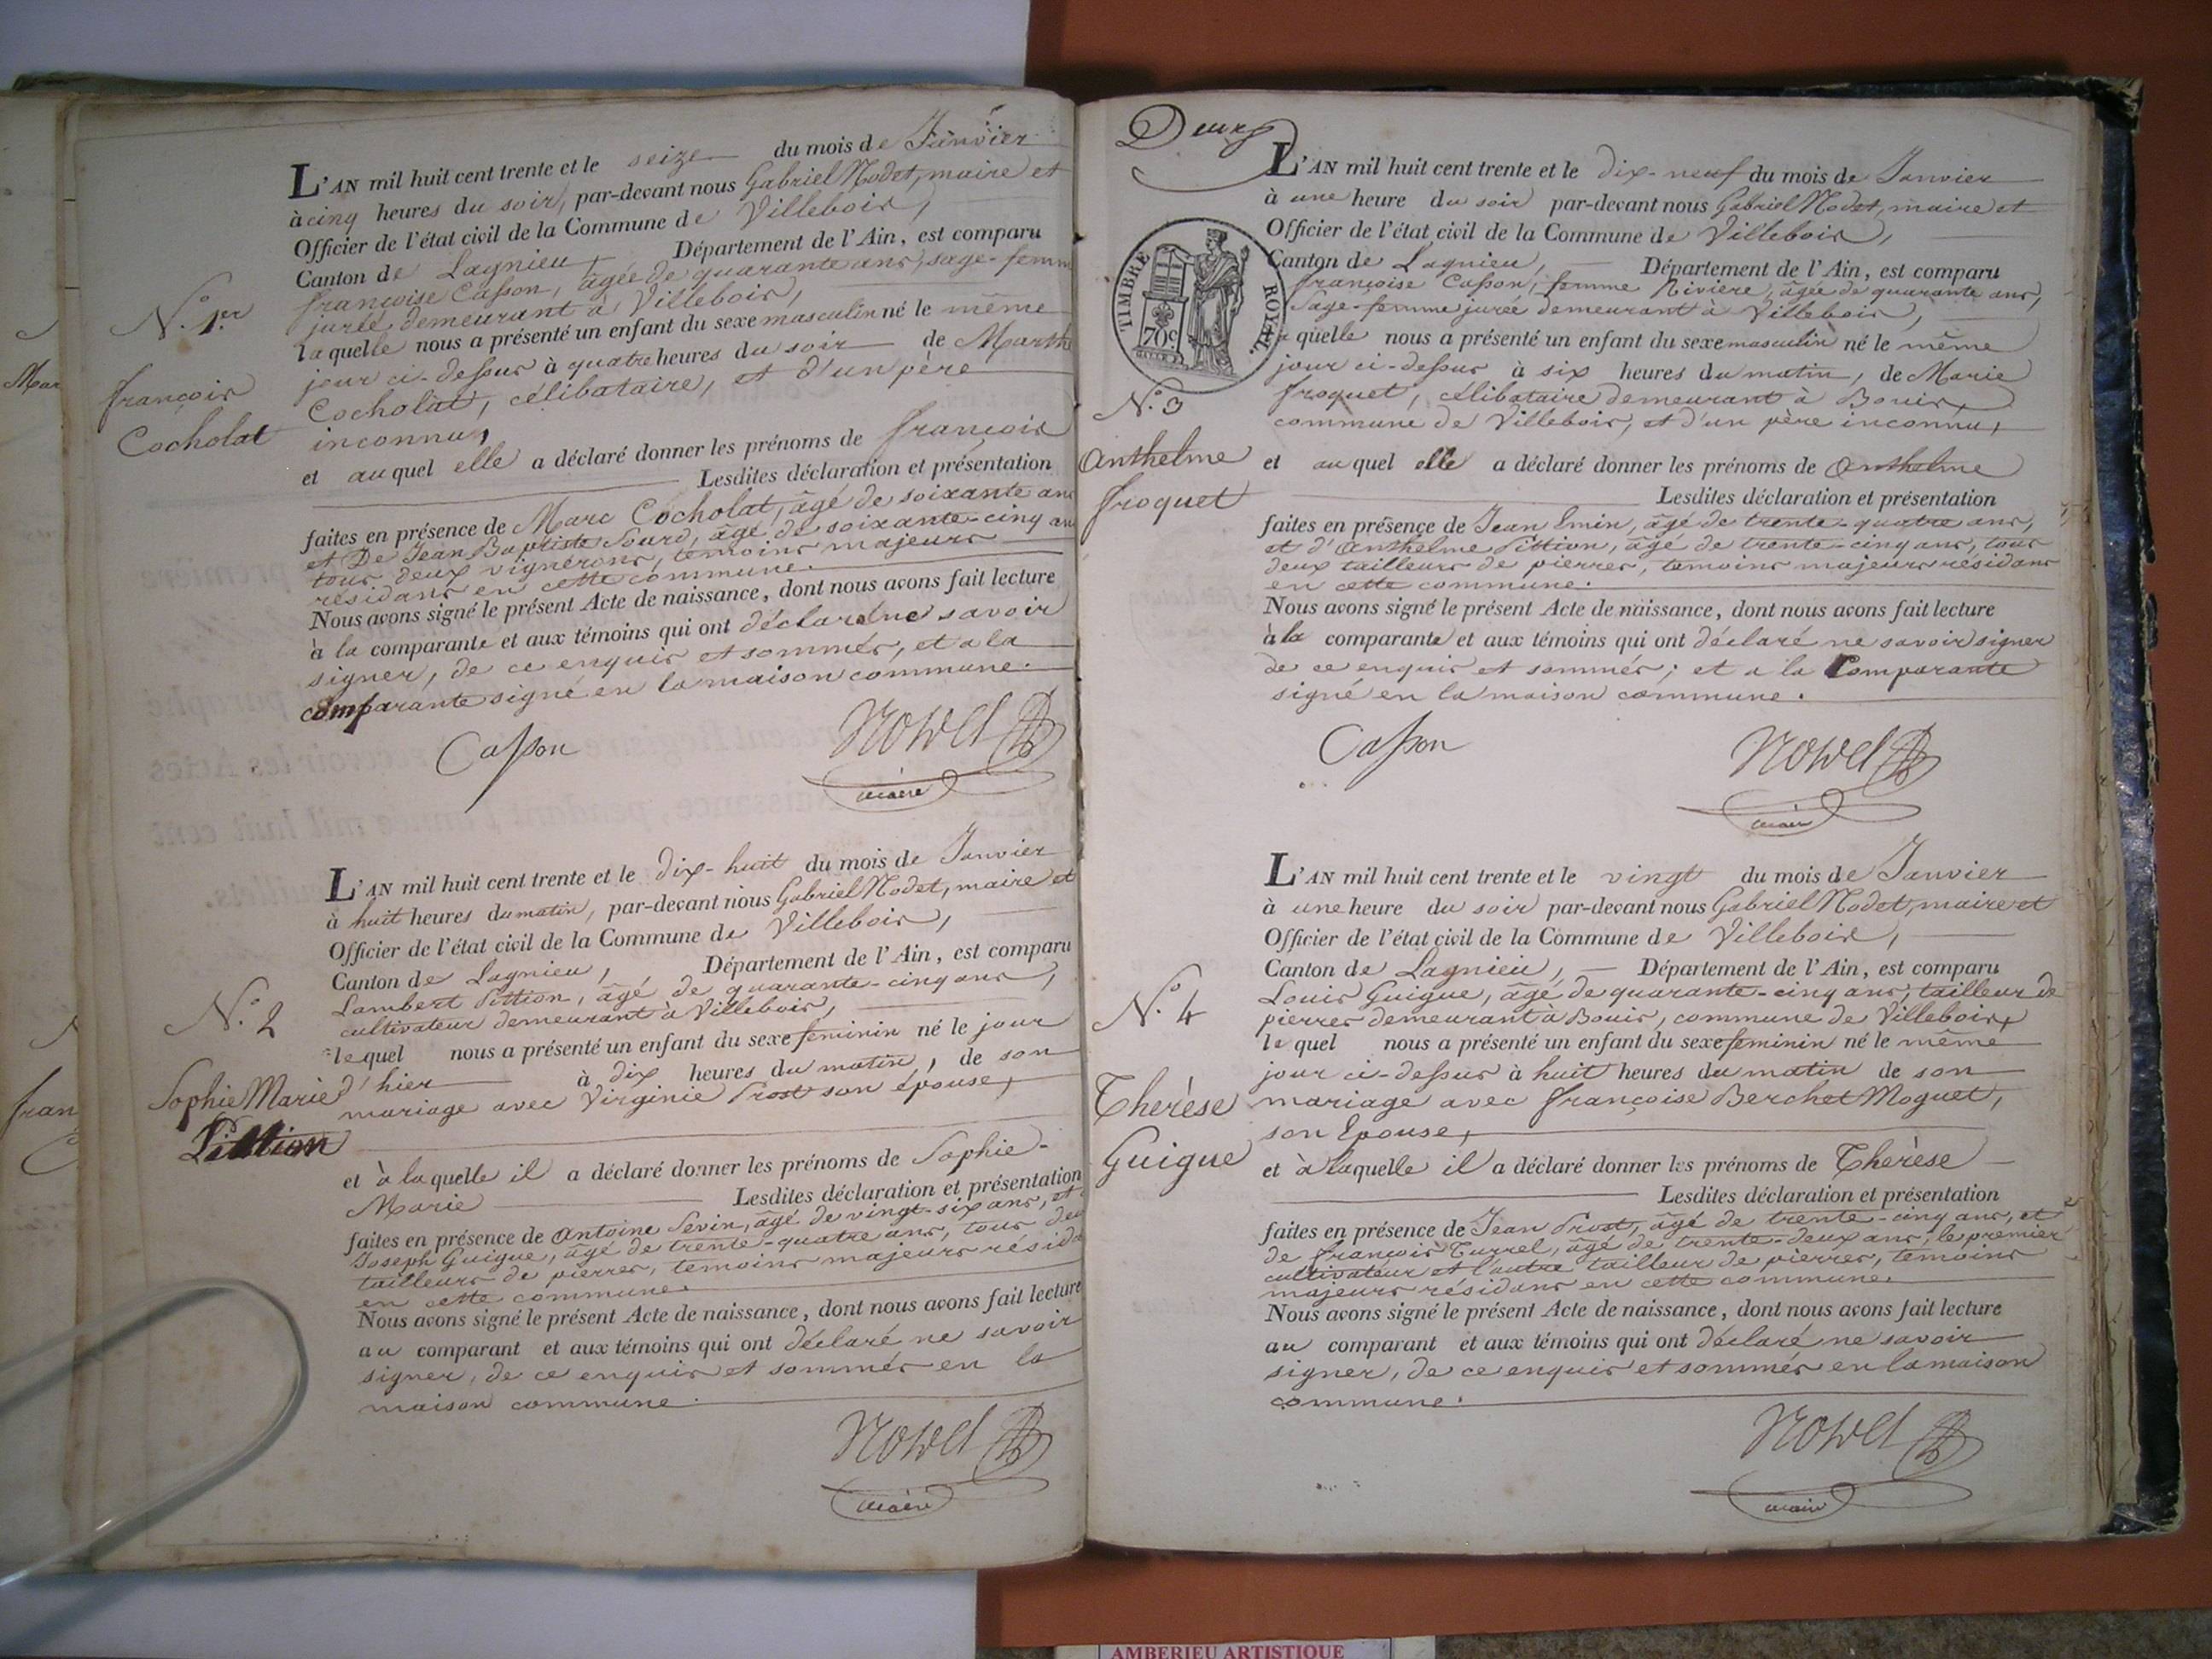 N.° 1.er
François
Cocholat
L'AN mil huit cent trente et le seize du mois de Janvier
à cinq heures du soir, par-devant nous Gabriel Nodet, maire et
Officier de l'état civil de la Commune de Villebois,
Canton de Lagnieu, Département de l'Ain, est comparu
françoise Casson, âgée de quarante ans, sage-femme
jurée demeurant à Villebois,
laquelle nous a présenté un enfant du sexe masculin né le même
jour ci-dessus à quatre heures du soir de Marthe
Cocholat, célibataire, et d'un père
inconnu,
et auquel elle a déclaré donner les prénoms de françois
Lesdites déclaration et présentation
faites en présence de Marc Cocholat, âgé de soixante ans
et De Jean Baptiste Sourd, âgé de soixante-cinq ans
tous deux vignerons, témoins majeurs
résidans en cette commune.
Nous avons signé le présent Acte de naissance, dont nous avons fait lecture
à la comparante et aux témoins qui ont déclaré ne savoir
signer, de ce enquis et sommés, et a la
comparante signé en la maison commune.
Casson Nodet
maire
N.° 2
Sophie Marie
Pittion
L'AN mil huit cent trente et le dix-huit du mois de Janvier
à huit heures du matin, par-devant nous Gabriel Nodet, maire et
Officier de l'état civil de la Commune de Villebois,
Canton de Lagnieu, Département de l'Ain, est comparu
Lambert Pittion, âgé de quarante-cinq ans,
cultivateur demeurant à Villebois,
lequel nous a présenté un enfant du sexe féminin né le jour
d'hier à dix heures du matin, de son
mariage avec Virginie Prost son épouse,
et à laquelle il a déclaré donner les prénoms de Sophie-
Marie Lesdites déclaration et présentation
faites en présence de Antoine Sevin, âgé de vingt-six ans, et
Joseph Guigue, âgé de trente-quatre ans, tous deux
tailleurs de pierres, témoins majeurs résidans
en cette commune.
Nous avons signé le présent Acte de naissance, dont nous avons fait lecture
au comparant et aux témoins qui ont déclaré ne savoir
signer, de ce enquis et sommés en la
maison commune.
Nodet
maire
Deux
TIMBRE ROYAL.
70c
N.° 3
Anthelme
froquet
L'AN mil huit cent trente et le dix-neuf du mois de Janvier
à une heure du soir par-devant nous Gabriel Nodet, maire et
Officier de l'état civil de la Commune de Villebois,
Canton de Lagnieu, Département de l'Ain, est comparu
françoise Casson, femme Riviere, âgée de quarante ans,
Sage-femme jurée demeurant à Villebois,
laquelle nous a présenté un enfant du sexe masculin né le même
jour ci-dessus à six heures du matin, de Marie
froquet, célibataire demeurant à Bouis,
commune de Villebois, et d'un père inconnu,
et auquel elle a déclaré donner les prénoms de Anthelme
Lesdites déclaration et présentation
faites en présence de Jean Emin, âgé de trente-quatre ans,
et d'Anthelme Pittion, âgé de trente-cinq ans, tous
deux tailleurs de pierres, témoins majeurs résidans
en cette commune.
Nous avons signé le présent Acte de naissance, dont nous avons fait lecture
à la comparante et aux témoins qui ont déclaré ne savoir signer
de ce enquis et sommés; et a la Comparante
signé en la maison commune.
Casson Nodet
maire
N.° 4
Thérèse
Guigue
L'AN mil huit cent trente et le vingt du mois de Janvier
à une heure du soir par-devant nous Gabriel Nodet, maire et
Officier de l'état civil de la Commune de Villebois,
Canton de Lagnieu, Département de l'Ain, est comparu
Louis Guigue, âgé de quarante-cinq ans, tailleur de
pierres demeurant à Bouis, commune de Villebois,
lequel nous a présenté un enfant du sexe féminin né le même
jour ci-dessus à huit heures du matin de son
mariage avec françoise Berchet Moguet,
son Epouse,
et à laquelle il a déclaré donner les prénoms de Thérèse
Lesdites déclaration et présentation
faites en présence de Jean Prost, âgé de trente-cinq ans, et
de françois Turrel, âgé de trente-deux ans, le premier
cultivateur et l'autre tailleur de pierres, témoins
majeurs résidans en cette commune.
Nous avons signé le présent Acte de naissance, dont nous avons fait lecture
au comparant et aux témoins qui ont déclaré ne savoir
signer, de ce enquis et sommés en la maison
commune.
Nodet
maire
AMBERIEU ARTISTIQUE